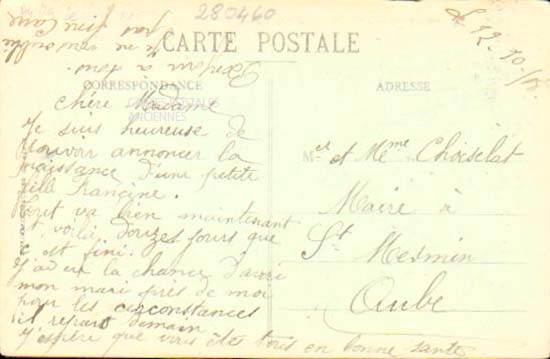 280460
Le 12-10-15
CARTE POSTALE
CORRESPONDANCE
ADRESSE
CARTES POSTALES
ANCIENNES
Chère Madame
Je suis heureuse de
pouvoir annoncer la
naissance d'une petite
fille Francine.
Tout va bien maintenant
et voilà douze jours que
c'est fini.
J'ai eu la chance d'avoir
mon mari près de moi
pour les circonstances
il repart demain
J'espère que vous êtes tous en bonne santé
Bonjour à tous.
je ne vous oublie
pas
Mr et Mme Choiselat
Maire à
St Mesmin
Aube